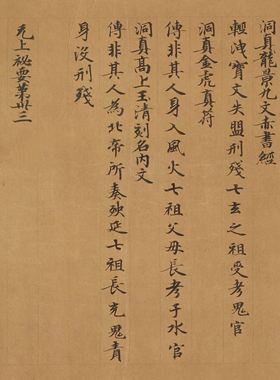 洞真龍景九文赤書經
輕洩寶文失盟刑殘七玄之祖受考鬼官
洞真金虎真符
傳非其人身入風火七祖父母長考于水官
洞真高上玉清刻名內文
傳非其人為北帝所奏殃延七祖長充鬼責
身沒刑殘
无上祕要第卅三